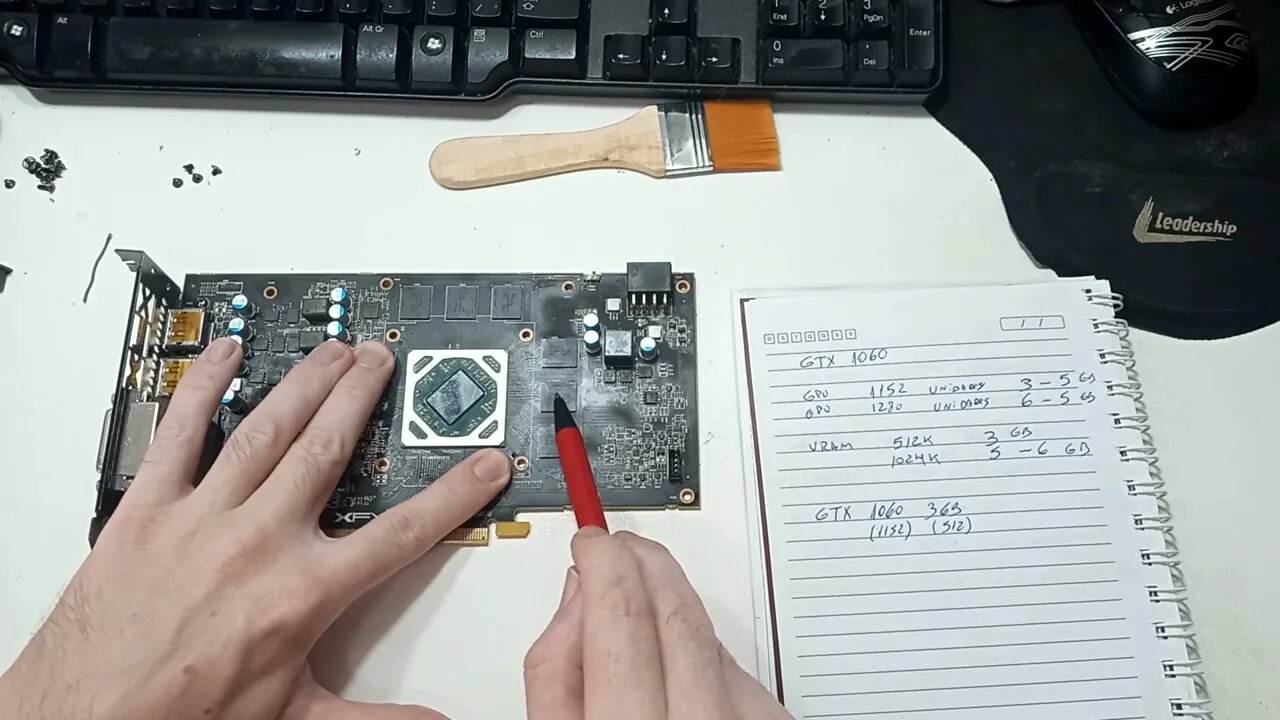 Alt
Alt Gr
Ctrl
1
End
2
3
PgDn
0
Ins
.
Del
Enter
Logitech
Leadership
D S T Q Q S S
/ /
GTX 1060
GPU 1152 UNIDADES 3 - 5 GB
GPU 1280 UNIDADES 6 - 5 GB
VRAM 512K 3 GB
1024K 5 - 6 GB
GTX 1060 3GB
(1152) (512)
XFX